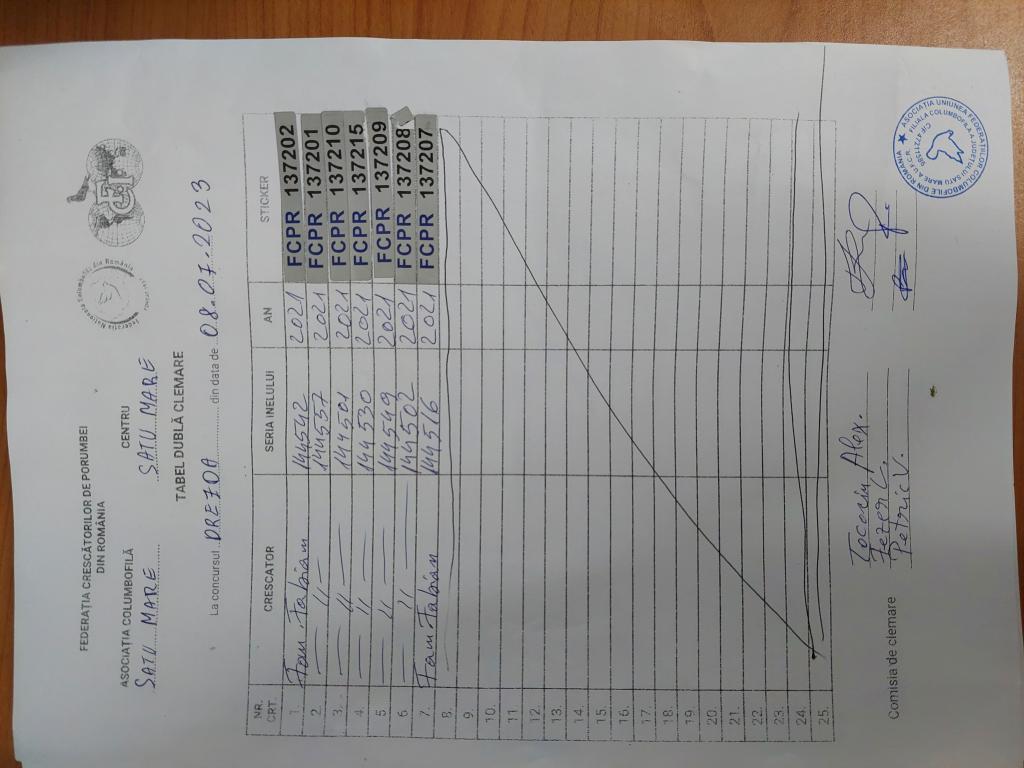 FEDERAȚIA CRESCĂTORILOR DE PORUMBEI
DIN ROMÂNIA
ASOCIAȚIA COLUMBOFILĂ CENTRU
SATU MARE SATU MARE
TABEL DUBLĂ CLEMARE
La concursul DREZDA din data de 08.07.2023
NR. CRT. CRESCĂTOR SERIA INELULUI AN STICKER
1. Fam Fabian 144542 2021 FCPR 137202
2. — " — 144557 2021 FCPR 137201
3. — " — 144501 2021 FCPR 137210
4. — " — 144530 2021 FCPR 137215
5. — " — 144549 2021 FCPR 137209
6. — " — 144502 2021 FCPR 137208
7. Fam Fabian 144516 2021 FCPR 137207
8.
9.
10.
11.
12.
13.
14.
15.
16.
17.
18.
19.
20.
21.
22.
23.
24.
25.
Comisia de clemare
Alex.
Petric V.
ASOCIAȚIA UNIUNEA FEDERAȚIILOR COLUMBOFILE DIN ROMÂNIA
FILIALA COLUMBOFILĂ A JUDEȚULUI SATU MARE A U.F.C.R.